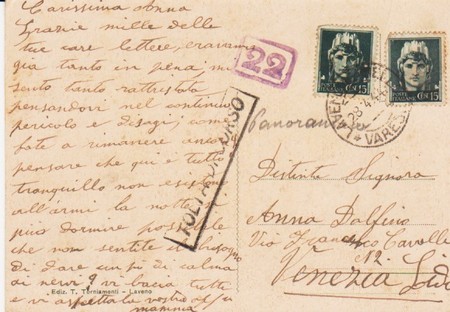 Carissima Anna
Grazie mille delle
tue care lettere, eravamo
già tanto in pena, mi
sento tanto rattristata
pensandovi nel continuo
pericolo e disagi, come
fate a rimanere ancora
pensare che qui è tutto
tranquillo non esistono
all'armi la notte si
può dormire possibile
che non sentite il bisogno
di dare un pò di calma
ai nervi? vi bacia tutte
e vi aspetta la vostra
mamma
Ediz. T. Torniamenti - Laveno
22
TOLTA DAL CORSO
POSTE ITALIANE CENT. 15
POSTE ITALIANE CENT. 15
VARESE
Panorama
Distinta Signora
Anna Dalfino
Via Francesco Cavalle
N.
Venezia Lido